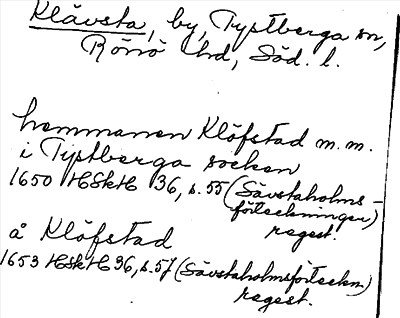 Klävsta, by, Tystberga sn,
Rönö hd, Söd. l.
hemmanen Klöfstad m.m.
i Tystberga socken
1650 HSkH 36, s. 55 (Sävstaholms-
förteckningen)
regest.
å Klöfstad
1653 HSkH 36, s. 57 (Sävstaholmsförteckn.)
regest.